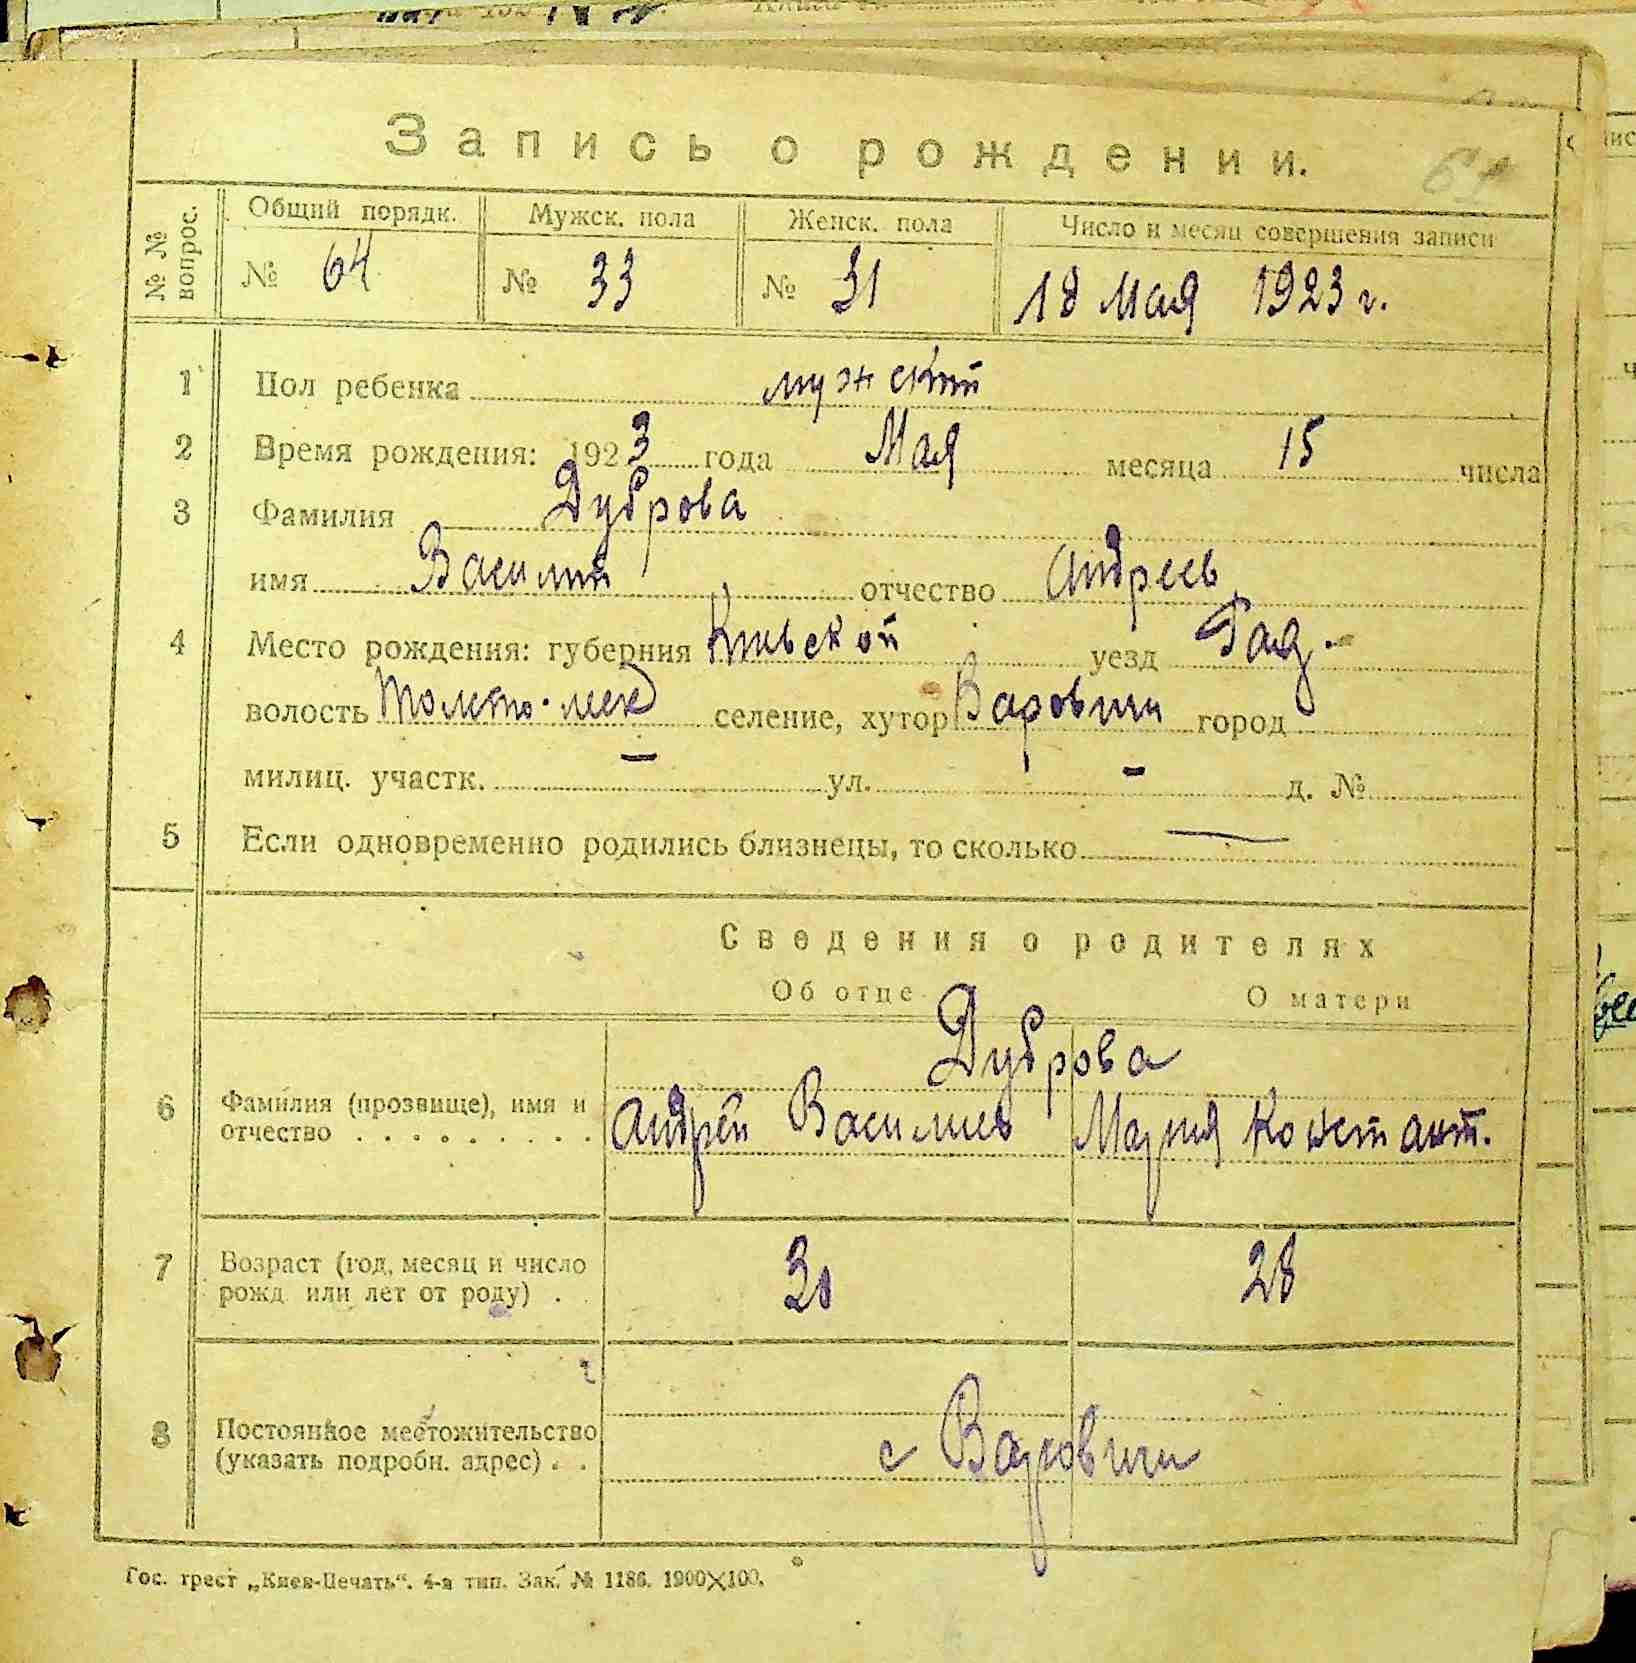 Запись о рождении.
64
№ № вопрос.
Общий порядк. Мужск. пола Женск. пола Число и месяц совершения записи
№ 64 № 33 № 31 18 Мая 1923 г.
1 Пол ребенка мужский
2 Время рождения: 1923 года Мая месяца 15 числа
3 Фамилия Дуброва
имя Василий отчество Андреев
4 Место рождения: губерния Киевской уезд Рад.
волость селение, хутор Варовичи город
милиц. участк. — ул. — д. №
5 Если одновременно родились близнецы, то сколько —
Сведения о родителях
Об отце О матери
Дуброва
6 Фамилия (прозвище), имя и отчество . . . . . . . . . Андрей Василиев Мария Констант.
7 Возраст (год, месяц и число рожд. или лет от роду) . . 30 28
8 Постоянное местожительство (указать подробн. адрес) . . с Варовичи
Гос. трест „Киев-Печать“. 4-я тип. Зак. № 1186. 1900×100.